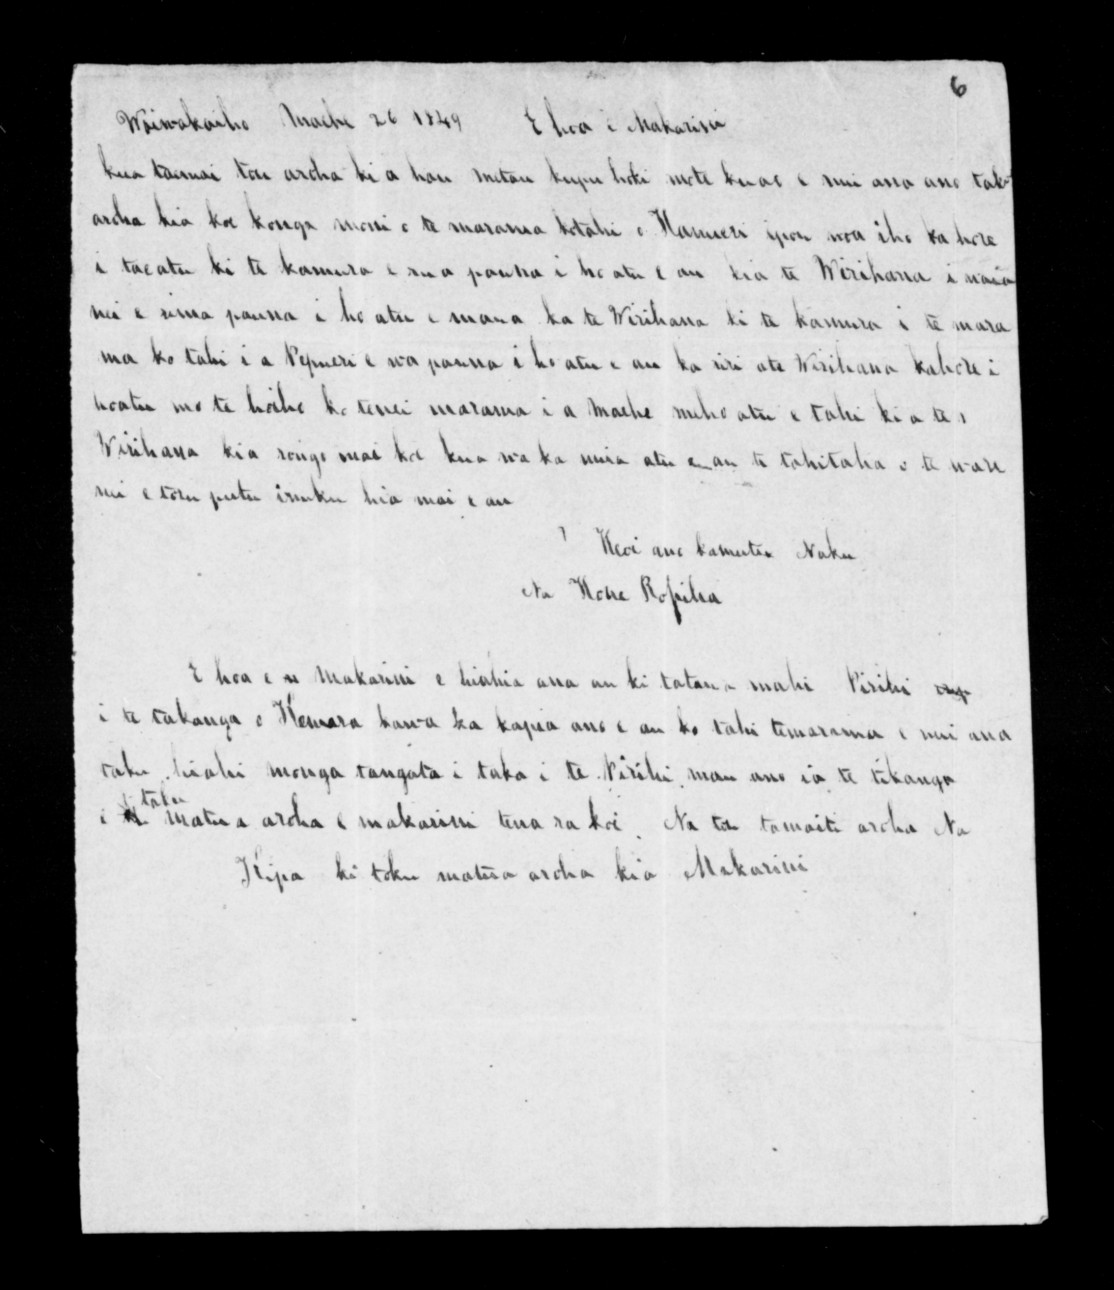 6
Waiwakaiho Maehe 26 1849 E hoa i Makarini
kua taemai tou aroha ki a hau metau kupu hoki mote kuao e nui ana ano taku
aroha kia koe konga moni o te marama kotahi o Hanueri ipou noa iho kahore
i taeatu ki te kamura e rua pauna i ho atu e au kia te Wirihana i naia
nei e rima pauna i ho atu e maua ka te Wirihana ki te kamura i te mara
ma ko tahi i a Pepueri e wa pauna i ho atu e au ka riri ate Wirihana kahore i
hoatu mo te hoiho ko tenei marama i a Maehe meho atu e tahi ki a te
Wirihana kia rongo mai koe kua wa ka nuia atu e au te tahitaha o te ware
nei e toru putu inuku hia mai e au
Heoi ano kamutu Naku
Na Hone Ropiha
E hoa e Makarini e hiahia ana au ki tatau mahi Pirihi
i te takanga o Hemara kawa ka kapia ano e au ko tahi temarama e nui ana
taku hiahi monga tangata i taka i te Pirihi mau ano ia te tikanga
i taku matua aroha e makarini tena ra koe Na tou tamaiti aroha Na
Kipa ki toku matua aroha kia Makarini